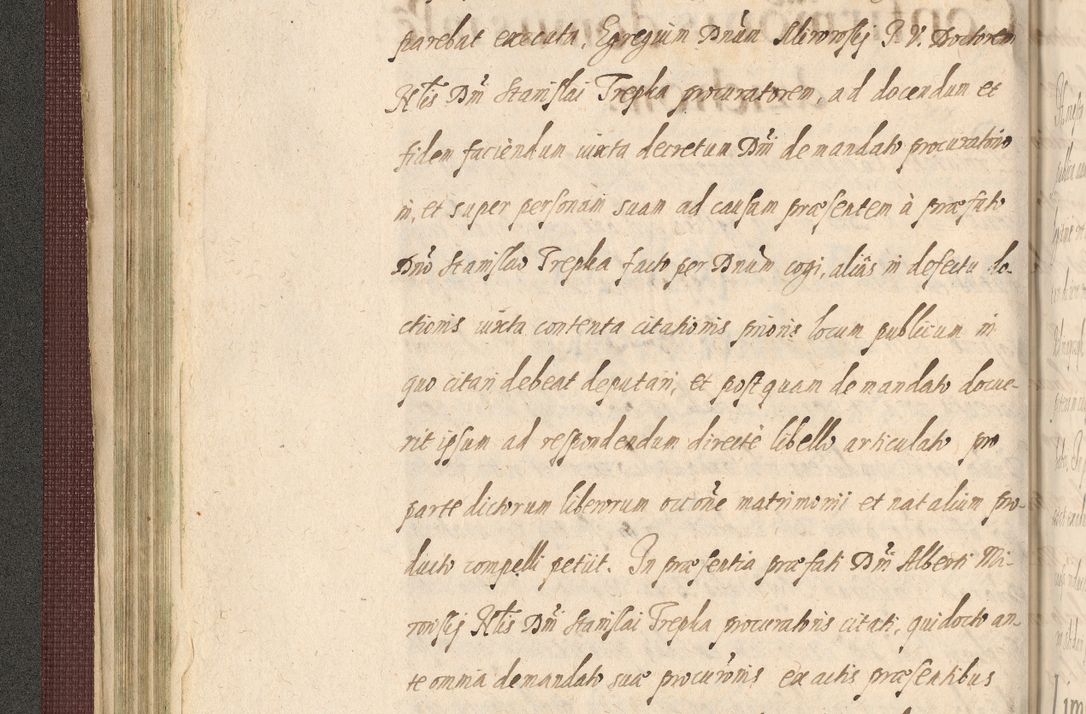 parebat executa, Egregium Dnum Mironsÿ J. V. Doctorem
Nlis Dni Stanislai Trepka procuratorem, ad docendum et
fidem faciendum iuxta decretum Dni de mandato procuratorio
in, et super personam suam ad causam præsentem à præfato
Dno Stanislao Trepka facto per Dnum cogi, aliàs in defectu do-
ctionis iuxta contenta citationis prioris locum publicum in
quo citari debeat deputari, et postquam de mandato docue
rit ipsum ad respondendum directè libello articulato pro
parte dictorum liberorum occone matrimonii et natalium pro-
ducto compelli petiit. In præsentia præfati Dni Alberti Mi-
ronsÿ Nlis Dni Stanislai Trepka procuratoris citati, qui docto an
te omnia de mandato suæ procuronis ex actis præsentibus